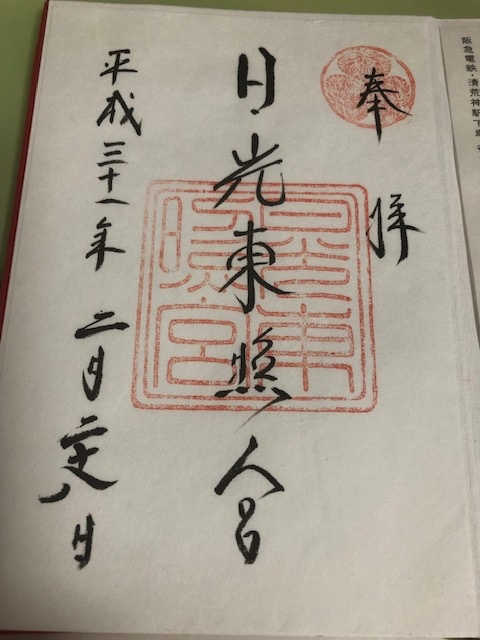 奉拝
日光東照宮
日光東照宮
平成三十一年 二月二十八日
阪急電鉄・清荒神駅下車